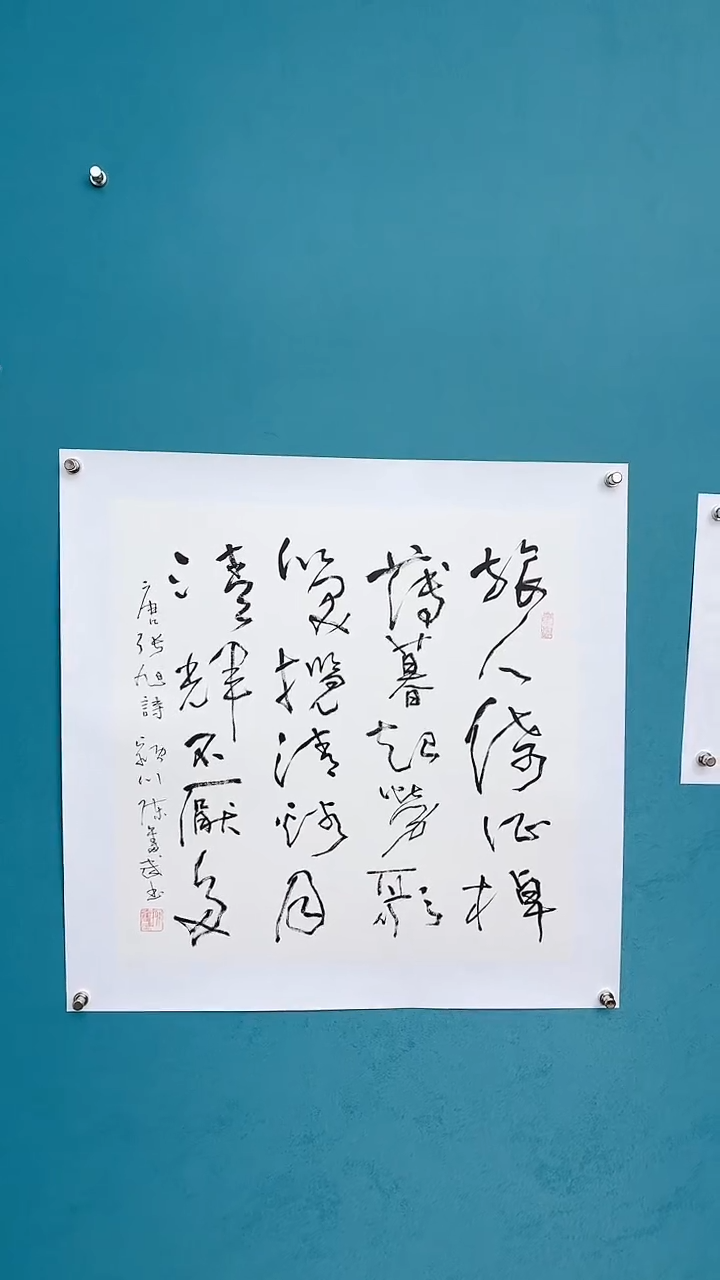 旅人倚征棹
薄暮起勞歌
笑攬清溪月
清輝不厭多
唐張旭詩 潁川陳武書